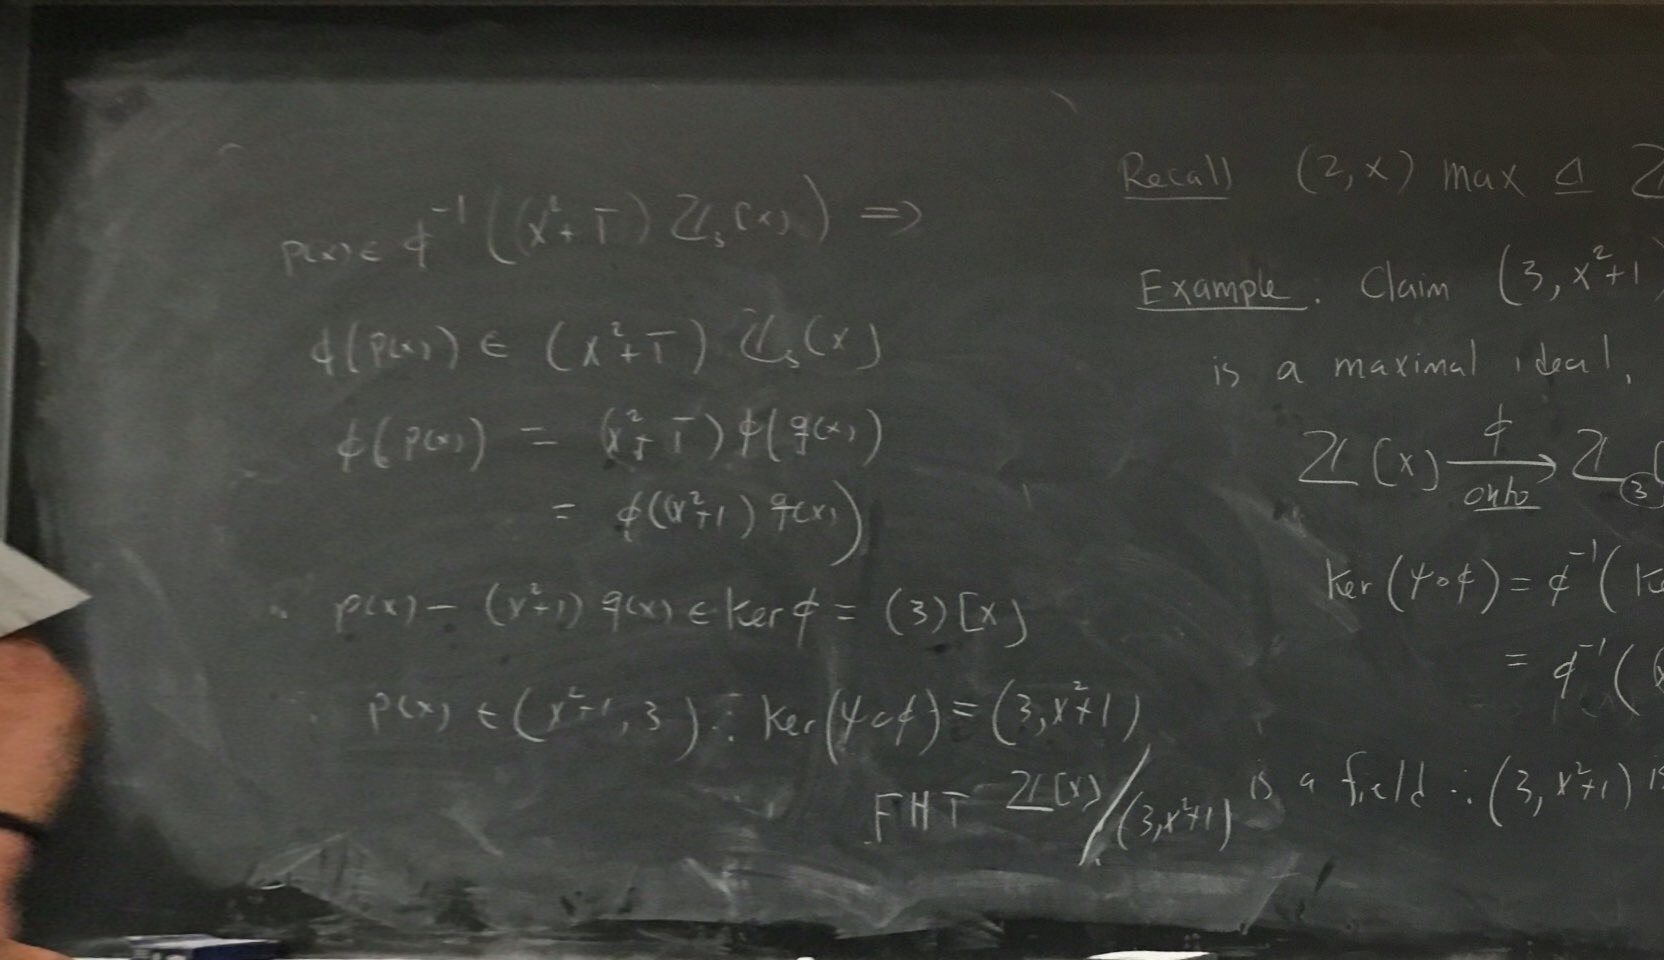 p(x) ∈ ϕ⁻¹((x²+1̄) ℤ₃[x]) ⇒
ϕ(p(x)) ∈ (x²+1̄) ℤ₃[x]
ϕ(p(x)) = (x²+1̄) ϕ(q(x))
= ϕ((x²+1) q(x))
∴ p(x) − (x²+1) q(x) ∈ ker ϕ = (3)[x]
∴ p(x) ∈ (x²+1, 3) ∴ Ker(ψ∘ϕ) = (3, x²+1)
FHT ℤ[x]/(3, x²+1) is a field ∴ (3, x²+1) is
Recall (2, x) max ⊴ ℤ
Example. Claim (3, x²+1)
is a maximal ideal.
ℤ[x] —ϕ→ ℤ₃[
onto
Ker(ψ∘ϕ) = ϕ⁻¹(Ke
= ϕ⁻¹((x